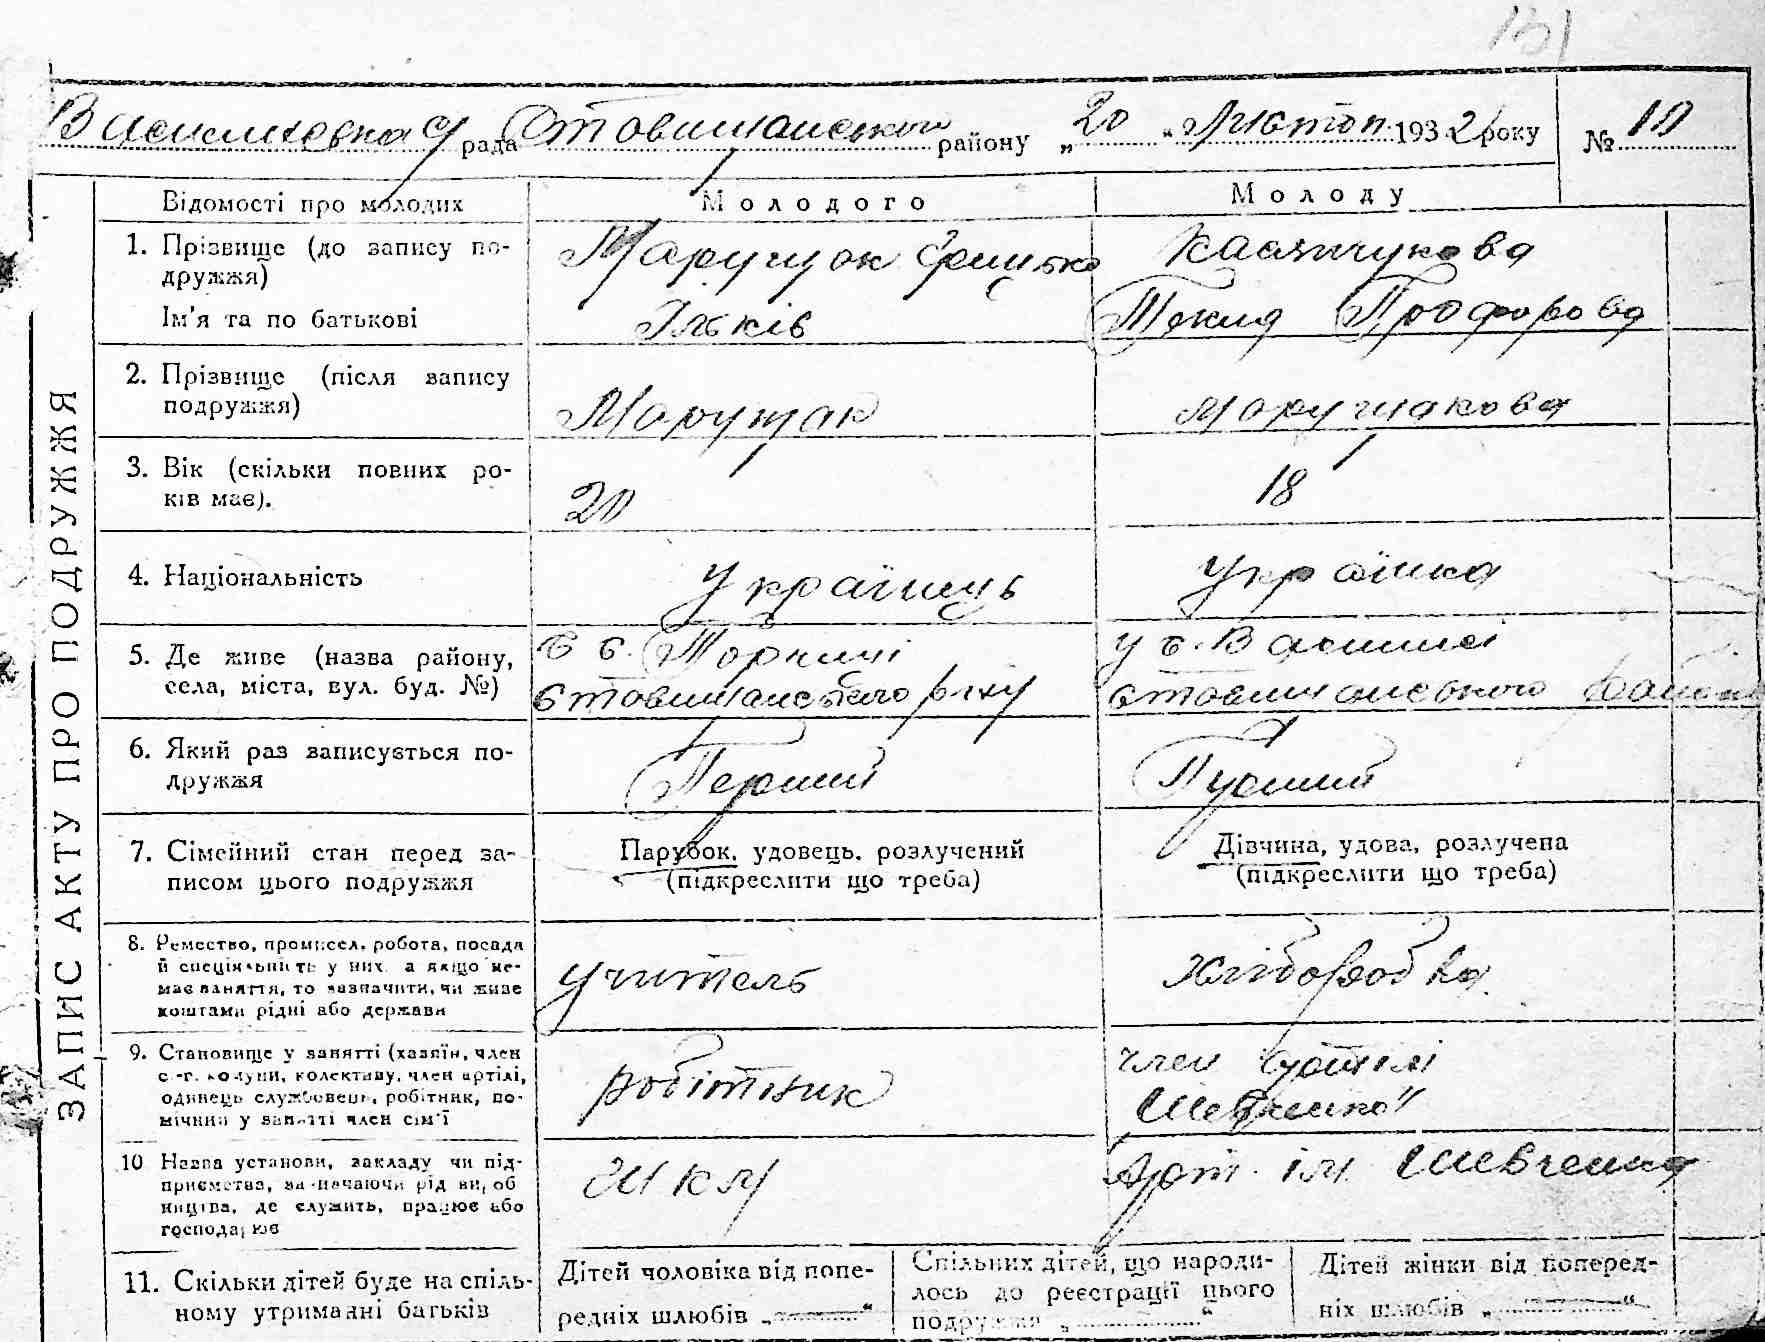 131
Василиховка с/рада Ставищанського району „20" Листоп. 1932 року № 10
ЗАПИС АКТУ ПРО ПОДРУЖЖЯ
Відомості про молодих
Молодого
Молоду
1. Прізвище (до запису по-
дружжя)
Ім'я та по батькові
Марущок Грицько
Ільків
Касянчукова
Текля Профорова
2. Прізвище (після запису
подружжя)
Марущак
Марущакова
3. Вік (скільки повних ро-
ків має).
20
18
4. Національність
Українець
Українка
5. Де живе (назва району,
села, міста, вул. буд. №)
в с. Торчиці
Ставищанського р-ну
у с. Василисі
Ставищанського району
6. Який раз записується по-
дружжя
Перший
Пуерший
7. Сімейний стан перед за-
писом цього подружжя
Парубок, удовець, розлучений
(підкреслити що треба)
Дівчина, удова, розлучена
(підкреслити що треба)
8. Ремество, промисел, робота, посада
й спеціяльність у них, а якщо не-
має заняття, то зазначити, чи живе
коштами рідні або держави
Учитель
Хліборобка
9. Становище у занятті (хазяїн, член
с.-г. комуни, колективу, член артілі,
одинець службовець, робітник, по-
мічний у занятті член сім'ї
робітник
член артілі
Шевченко"
10 Назва установи, закладу чи під-
приємства, зазначаючи рід вироб
ництва, де служить, працює або
господарює
ШКМ
Арт. ім. Шевченка
11. Скільки дітей буде на спіль-
ному утриманні батьків
Дітей чоловіка від попе-
редніх шлюбів „ "
Спільних дітей, що народи-
лось до реєстрації цього
подружжя „ "
Дітей жінки від поперед-
ніх шлюбів „ "